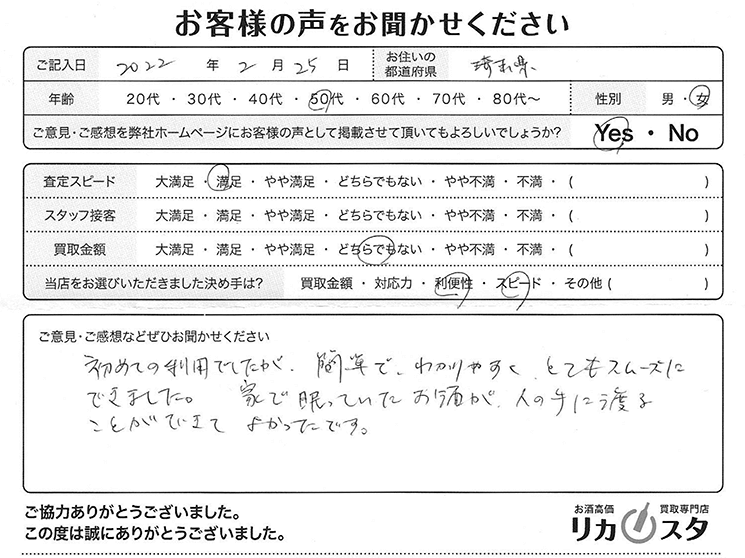 お客様の声をお聞かせください
ご記入日 2022 年 2 月 25 日 お住いの都道府県 埼玉県
年齢 20代 ・ 30代 ・ 40代 ・ 50代 ・ 60代 ・ 70代 ・ 80代〜 性別 男 ・ 女
ご意見・ご感想を弊社ホームページにお客様の声として掲載させて頂いてもよろしいでしょうか? Yes ・ No
査定スピード 大満足 ・ 満足 ・ やや満足 ・ どちらでもない ・ やや不満 ・ 不満 ・ ( )
スタッフ接客 大満足 ・ 満足 ・ やや満足 ・ どちらでもない ・ やや不満 ・ 不満 ・ ( )
買取金額 大満足 ・ 満足 ・ やや満足 ・ どちらでもない ・ やや不満 ・ 不満 ・ ( )
当店をお選びいただきました決め手は? 買取金額 ・ 対応力 ・ 利便性 ・ スピード ・ その他 ( )
ご意見・ご感想などぜひお聞かせください
初めての利用でしたが、簡単で、わかりやすく、とてもスムーズに
できました。 家で眠っていたお酒が、人の手に渡る
ことができて よかったです。
ご協力ありがとうございました。
この度は誠にありがとうございました。
お酒高価 買取専門店
リカスタ